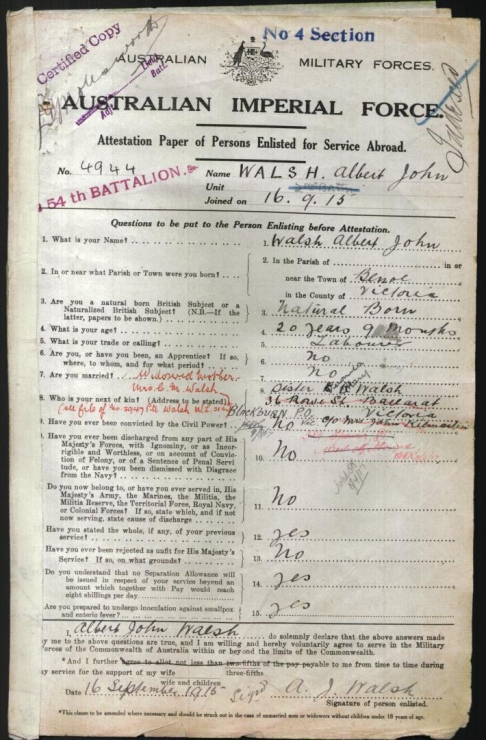 No 4 Section
Certified Copy
AUSTRALIAN MILITARY FORCES.
AUSTRALIAN IMPERIAL FORCE.
Attestation Paper of Persons Enlisted for Service Abroad.
No. 4944 Name WALSH. Albert John
54th BATTALION. Unit
Joined on 16.9.15
Questions to be put to the Person Enlisting before Attestation.
1. What is your Name? 1. Walsh Albert John
2. In or near what Parish or Town were you born? 2. In the Parish of in or
near the Town of
in the County of Victoria
3. Are you a natural born British Subject or a Naturalized British Subject? (N.B.—If the latter, papers to be shown.) 3. Natural Born
4. What is your age? 4. 20 years 9 months
5. What is your trade or calling? 5. Labourer
6. Are you, or have you been, an Apprentice? If so, where, to whom, and for what period? 6. No
7. Are you married? 7. No
Widowed Mother.
Mrs. C. M. Walsh
8. Who is your next of kin? (Address to be stated) 8. Sister Walsh
36 Rowe St. Ballarat
Victoria
BLACKBURN P.O. Vic c/o Mrs John
9. Have you ever been convicted by the Civil Power? No
Have you ever been discharged from any part of His Majesty's Forces, with Ignominy, or as Incorrigible and Worthless, or on account of Conviction of Felony, or of a Sentence of Penal Servitude, or have you been dismissed with Disgrace from the Navy? 10. No
Do you now belong to, or have you ever served in, His Majesty's Army, the Marines, the Militia, the Militia Reserve, the Territorial Force, Royal Navy, or Colonial Forces? If so, state which, and if not now serving, state cause of discharge 11. No
Have you stated the whole, if any, of your previous service? 12. yes
Have you ever been rejected as unfit for His Majesty's Service? If so, on what grounds? 13. No
Do you understand that no Separation Allowance will be issued in respect of your service beyond an amount which together with Pay would reach eight shillings per day. 14. yes
Are you prepared to undergo inoculation against smallpox and enteric fever? 15. yes
I, Albert John Walsh do solemnly declare that the above answers made
by me to the above questions are true, and I am willing and hereby voluntarily agree to serve in the Military
Forces of the Commonwealth of Australia within or beyond the limits of the Commonwealth.
*And I further agree to allot not less than two-fifths of the pay payable to me from time to time during
three-fifths
my service for the support of my wife
wife and children
Date 16 September 1915 Sigd A. J. Walsh
Signature of person enlisted.
*This clause to be amended where necessary and should be struck out in the case of unmarried men or widowers without children under 18 years of age.